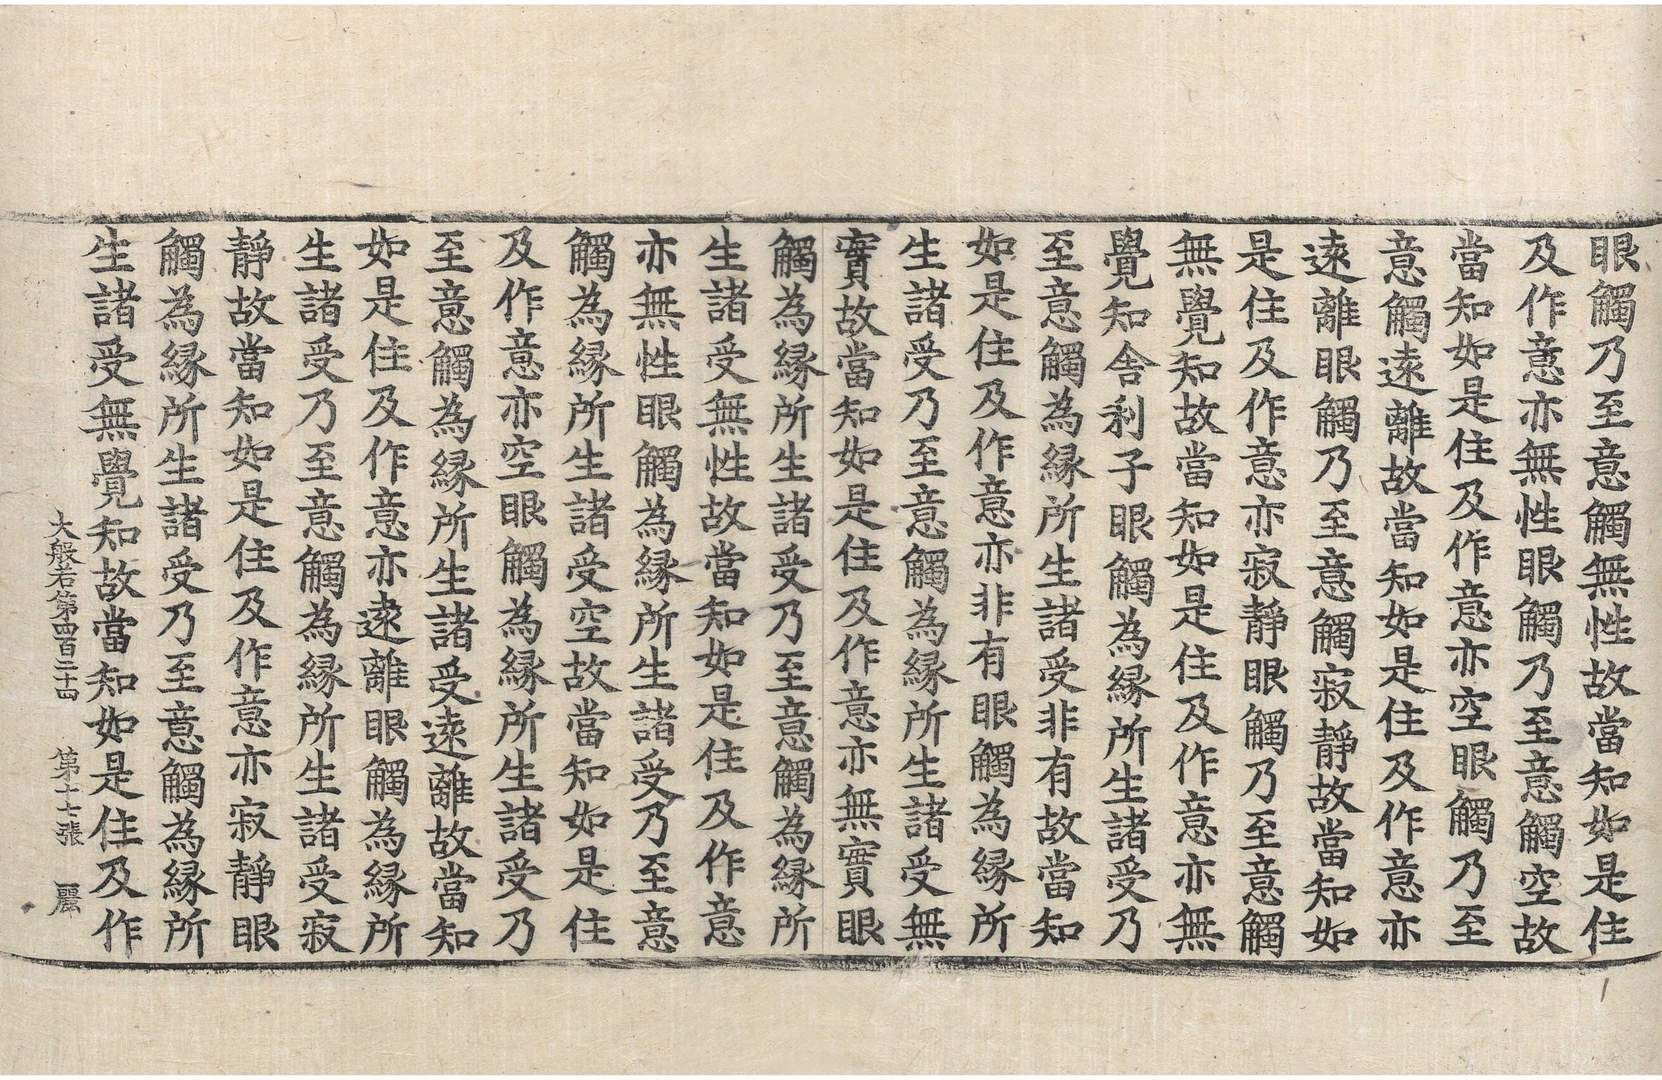 眼觸乃至意觸無性故當知如是住
及作意亦無性眼觸乃至意觸空故
當知如是住及作意亦空眼觸乃至
意觸遠離故當知如是住及作意亦
遠離眼觸乃至意觸寂靜故當知如
是住及作意亦寂靜眼觸乃至意觸
無覺知故當知如是住及作意亦無
覺知舍利子眼觸為縁所生諸受乃
至意觸為縁所生諸受非有故當知
如是住及作意亦非有眼觸為縁所
生諸受乃至意觸為縁所生諸受無
實故當知如是住及作意亦無實眼
觸為縁所生諸受乃至意觸為縁所
生諸受無性故當知如是住及作意
亦無性眼觸為縁所生諸受乃至意
觸為縁所生諸受空故當知如是住
及作意亦空眼觸為縁所生諸受乃
至意觸為縁所生諸受遠離故當知
如是住及作意亦遠離眼觸為縁所
生諸受乃至意觸為縁所生諸受寂
靜故當知如是住及作意亦寂靜眼
觸為縁所生諸受乃至意觸為縁所
生諸受無覺知故當知如是住及作
大般若第四百二十四 第十七張 麗